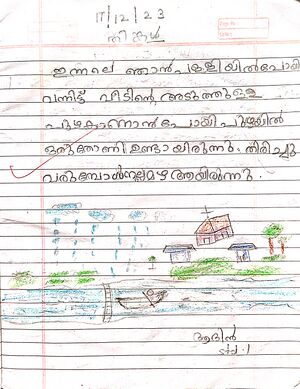 17/12/23
തിങ്കൾ
ഇന്നലെ ഞാൻ പള്ളിയിൽപോയി
വന്നിട്ട് വീടിന്റെ അടുത്തുള്ള
പുഴകാണാൻ പോയി പുഴയിൽ
ഒരുതോണി ഉണ്ടായിരുന്നു. തിരിച്ചു
വരുമ്പോൾ നല്ലമഴ ആയിരുന്നു.
ആദിൻ